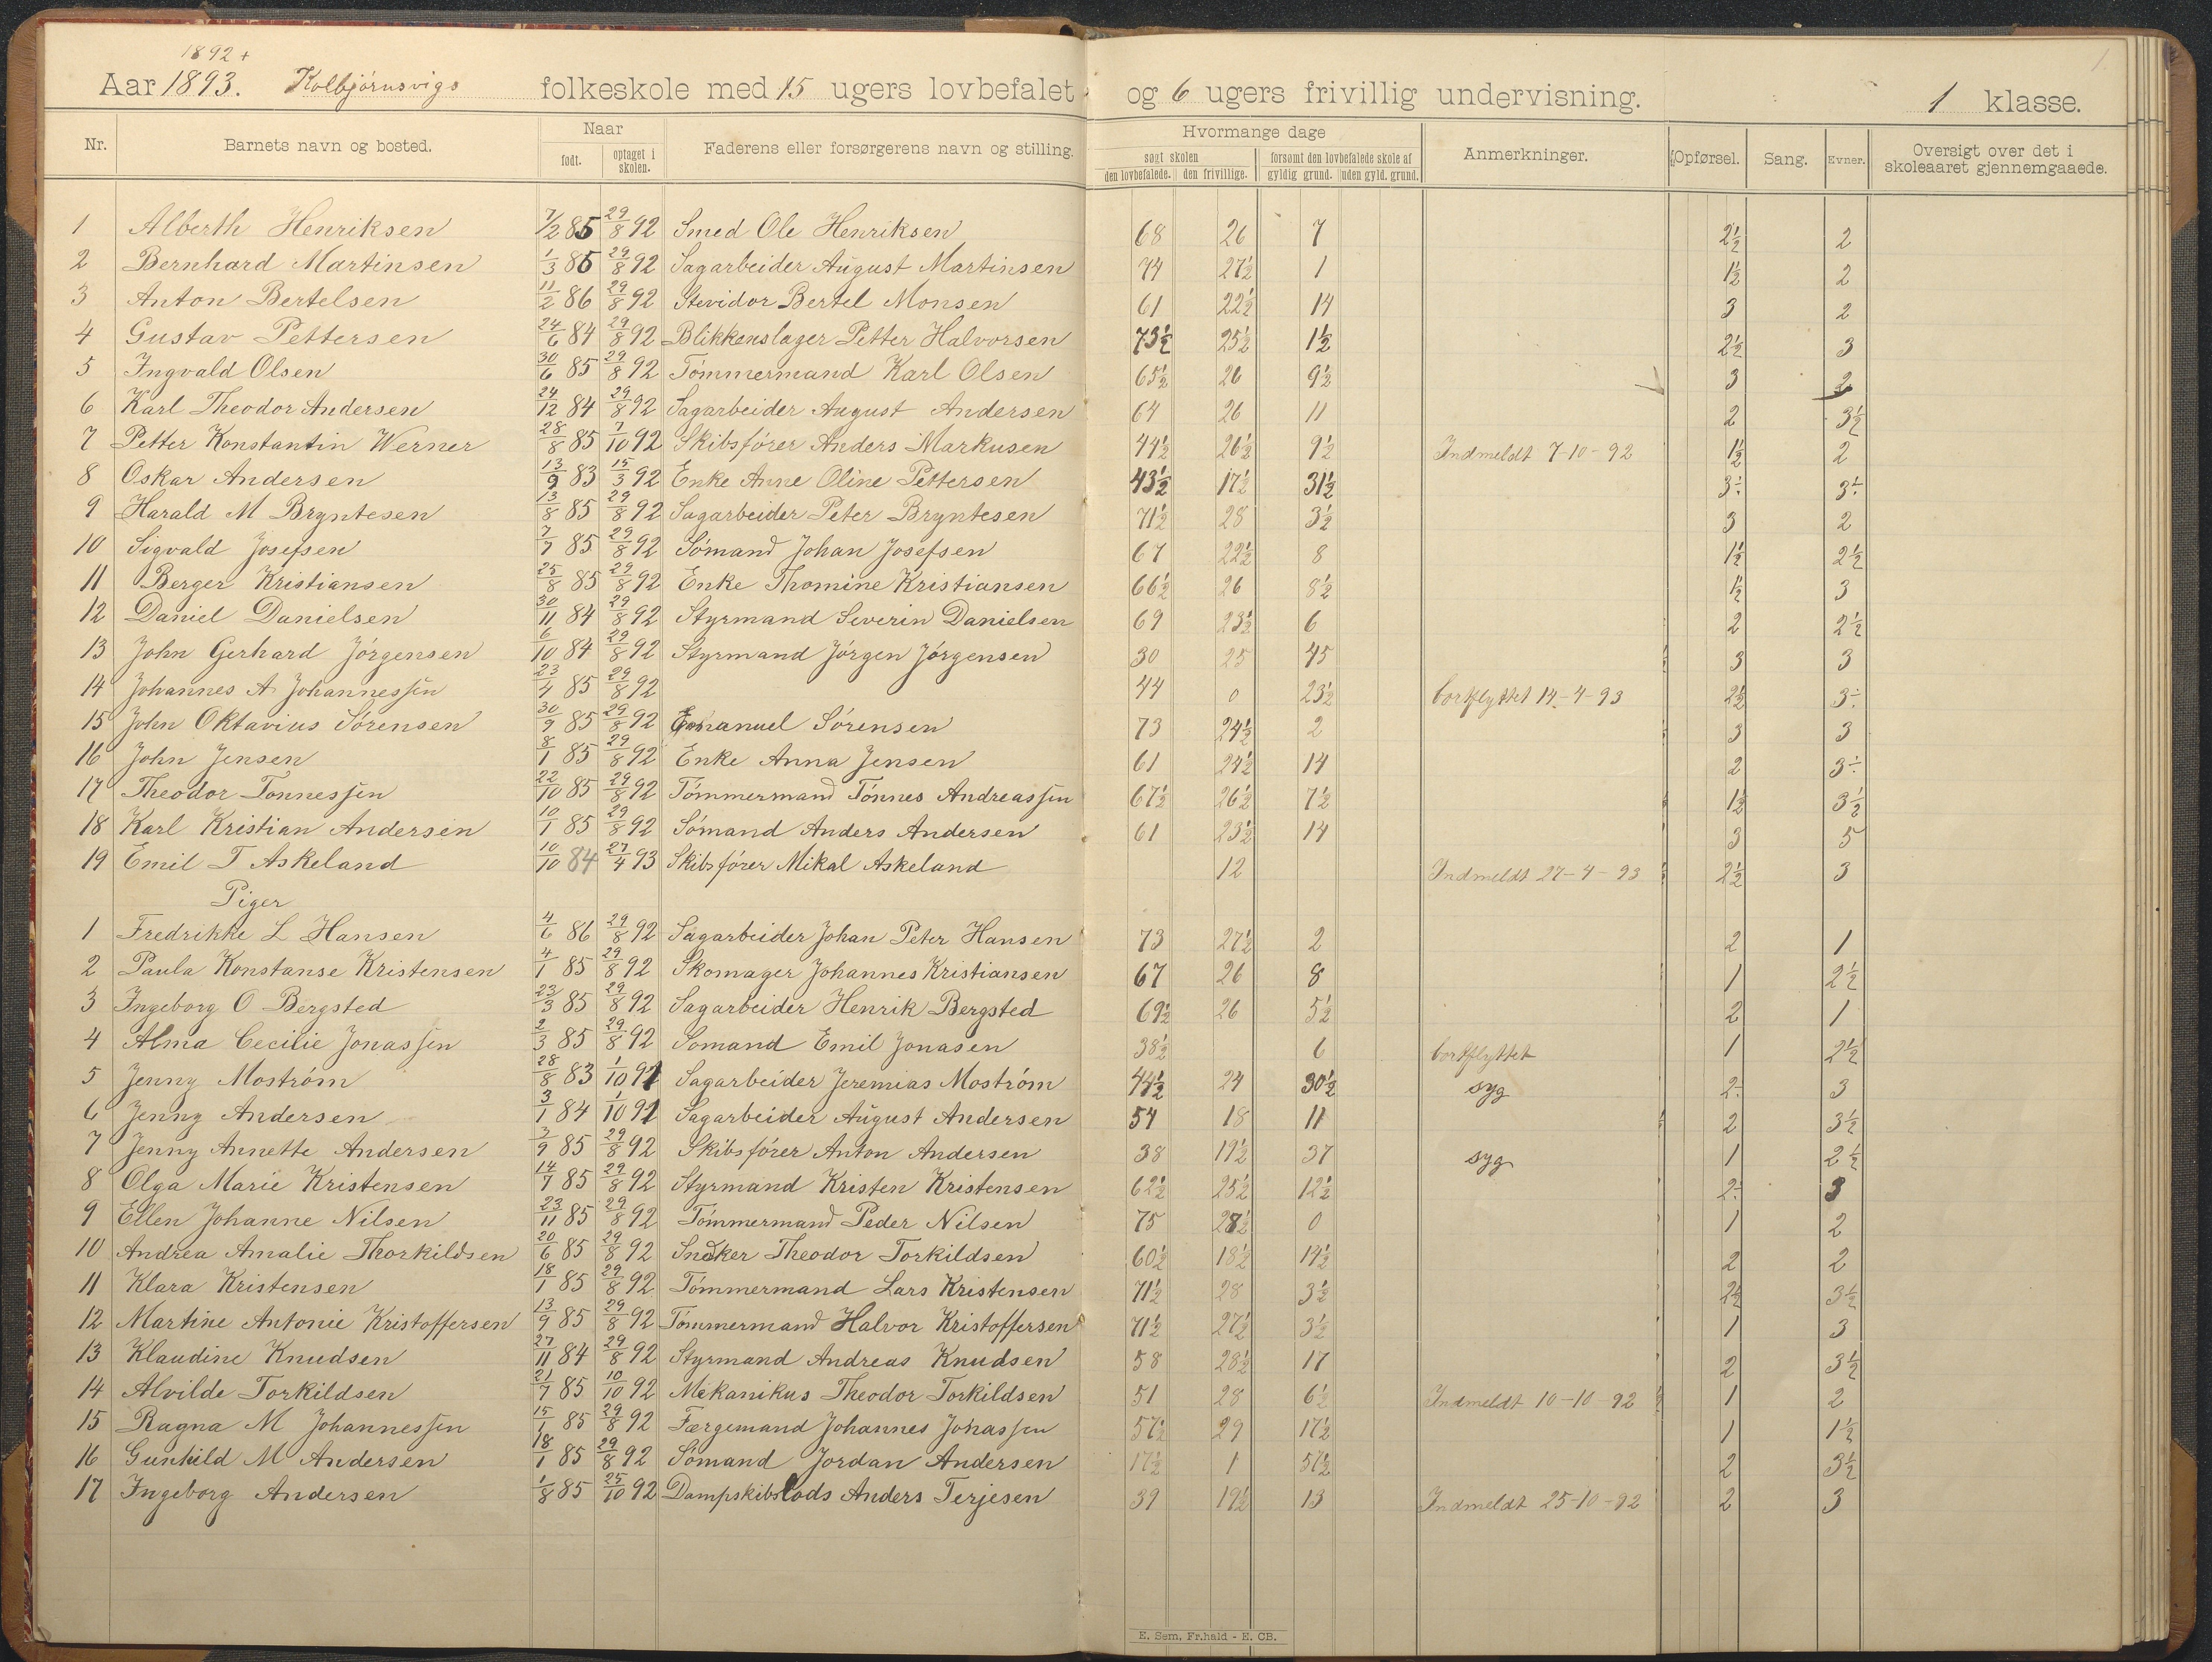 1892 +
1.
Aar 1893. Kolbjörnsvigs folkeskole med 15 ugers lovbefalet og 6 ugers frivillig undervisning. 1 klasse.
Nr. Barnets navn og bosted. Naar født. optaget i skolen. Faderens eller forsørgerens navn og stilling. Hvormange dage søgt skolen den lovbefalede. den frivillige. forsømt den lovbefalede skole af gyldig grund. uden gyld. grund. Anmerkninger. Opførsel. Sang. Evner. Oversigt over det i skoleaaret gjennemgaaede.
1 Alberth Henriksen 7/2 85 29/8 92 Smed Ole Henriksen 68 26 7 2½ 2
2 Bernhard Martinsen 1/3 85 29/8 92 Sagarbeider August Martinsen 74 27½ 1 1½ 2
3 Anton Bertelsen 11/2 86 29/8 92 Stevidor Bertel Monsen 61 22½ 14 3 2
4 Gustav Pettersen 24/6 84 29/8 92 Blikkenslager Petter Halvorsen 73½ 25½ 1½ 2½ 3
5 Ingvald Olsen 30/6 85 29/8 92 Tömmermand Karl Olsen 65½ 26 9½ 3 2
6 Karl Theodor Andersen 24/12 84 29/8 92 Sagarbeider August Andersen 64 26 11 2 3½
7 Petter Konstantin Werner 28/8 85 7/10 92 Skibsförer Anders Markusen 44½ 26½ 9½ Indmeldt 7-10-92 1½ 2
8 Oskar Andersen 13/9 83 15/3 92 Enke Anne Oline Pettersen 43½ 17½ 31½ 3÷ 3÷
9 Harald M Bryntesen 13/8 85 29/8 92 Sagarbeider Peter Bryntesen 71½ 28 3½ 3 2
10 Sigvald Josefsen 7/7 85 29/8 92 Sömand Johan Josefsen 67 22½ 8 1½ 2½
11 Berger Kristiansen 25/8 85 29/8 92 Enke Thomine Kristiansen 66½ 26 8½ 1½ 3
12 Daniel Danielsen 30/11 84 29/8 92 Styrmand Severin Danielsen 69 23½ 6 2 2½
13 John Gerhard Jörgensen 6/10 84 29/8 92 Styrmand Jörgen Jörgensen 30 25 45 3 3
14 Johannes A Johannessen 23/4 85 29/8 92 44 0 23½ bortflyttet 14-4-93 2½ 3÷
15 John Oktavius Sörensen 30/9 85 29/8 92 Emanuel Sörensen 73 24½ 2 3 3
16 John Jensen 8/1 85 29/8 92 Enke Anna Jensen 61 24½ 14 2 3÷
17 Theodor Tonnessen 22/10 85 29/8 92 Tömmermand Tönnes Andreassen 67½ 26½ 7½ 1½ 3½
18 Karl Kristian Andersen 10/1 85 29/8 92 Sömand Anders Andersen 61 23½ 14 3 5
19 Emil T Askeland 10/10 84 27/4 93 Skibsförer Mikal Askeland 12 Indmeldt 27-4-93 2½ 3
Piger
1 Fredrikke L Hansen 4/6 86 29/8 92 Sagarbeider Johan Peter Hansen 73 27½ 2 2 1
2 Paula Konstanse Kristensen 4/1 85 29/8 92 Skomager Johannes Kristiansen 67 26 8 1 2½
3 Ingeborg O Bergsted 23/3 85 29/8 92 Sagarbeider Henrik Bergsted 69½ 26 5½ 2 1
4 Alma Cecilie Jonassen 2/3 85 29/8 92 Somand Emil Jonasen 38½ 6 bortflyttet 1 2½
5 Jenny Moström 28/8 83 1/10 91 Sagarbeider Jeremias Moström 44½ 24 30½ syg 2÷ 3
6 Jenny Andersen 3/1 84 1/10 91 Sagarbeider August Andersen 54 18 11 2 3½
7 Jenny Annette Andersen 3/9 85 29/8 92 Skibsförer Anton Andersen 38 19½ 37 syg 1 2½
8 Olga Marie Kristensen 14/7 85 29/8 92 Styrmand Kristen Kristensen 62½ 25½ 12½ 2÷ 3
9 Ellen Johanne Nilsen 23/11 85 29/8 92 Tömmermand Peder Nilsen 75 28½ 0 1 2
10 Andrea Amalie Thorkildsen 20/6 85 29/8 92 Snedker Theodor Torkildsen 60½ 18½ 14½ 2 2
11 Klara Kristensen 18/1 85 29/8 92 Tömmermand Lars Kristensen 71½ 28 3½ 2½ 3½
12 Martine Antonie Kristoffersen 13/9 85 29/8 92 Tömmermand Halvor Kristoffersen 71½ 27½ 3½ 1 3
13 Klaudine Knudsen 27/11 84 29/8 92 Styrmand Andreas Knudsen 58 28½ 17 2 3½
14 Alvilde Torkildsen 21/7 85 10/10 92 Mekanikus Theodor Torkildsen 51 28 6½ Indmeldt 10-10-92 1 2
15 Ragna M Johannessen 15/1 85 29/8 92 Færgemand Johannes Johassen 57½ 29 17½ 1 1½
16 Gunhild M Andersen 18/1 85 29/8 92 Sömand Jordan Andersen 17½ 1 57½ 2 3½
17 Ingeborg Andersen 1/8 85 25/10 92 Dampskibslods Anders Terjesen 39 19½ 13 Indmeldt 25-10-92 2 3
E. Sem, Fr.hald - E. CB.